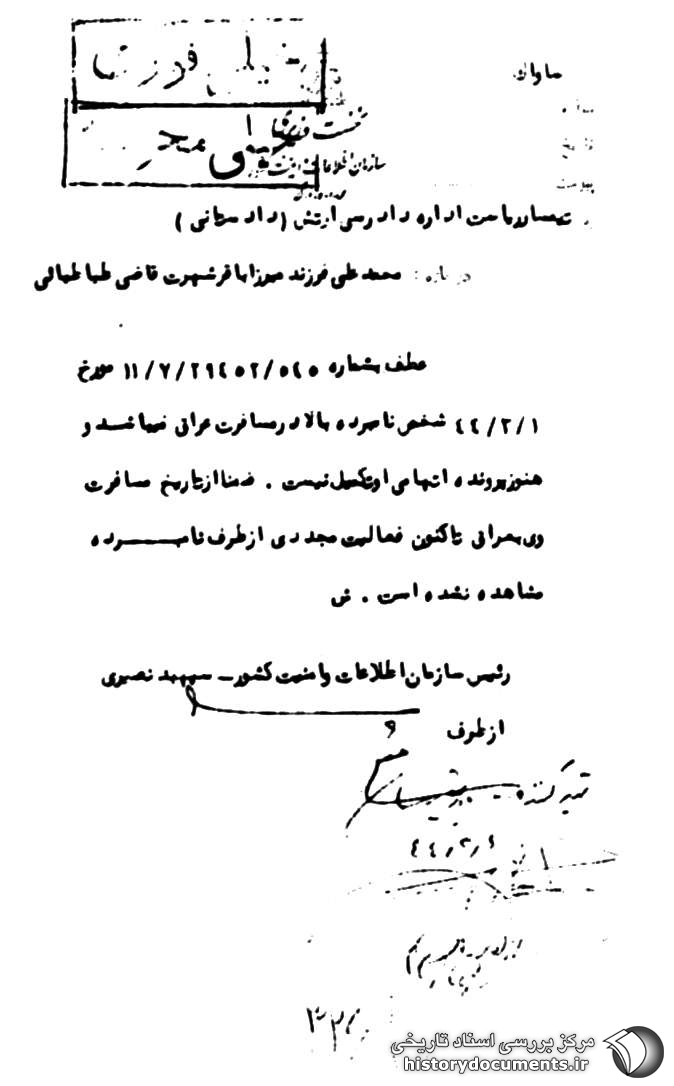 خیلی فوری
خیلی محرمانه
ساواک
نخست وزیری
سازمان اطلاعات و امنیت کشور
تیمسار ریاست اداره دادرسی ارتش (دادستانی)
درباره : محمدعلی فرزند میرزاباقر شهرت قاضی طباطبائی
عطف بشماره ۱۱/۷/۲۹٤۵۲/۵٤۵ مورخ
٤٤/۲/۱ شخص نامبرده بالا در مسافرت عراق میباشد و
هنوز پرونده اتهامی او تکمیل نیست . ضمنا از تاریخ مسافرت
وی بعراق تاکنون فعالیت مجددی از طرف نامبرده
مشاهده نشده است . ش
رئیس سازمان اطلاعات و امنیت کشور ــ سپهبد نصیری
از طرف
تهیه کننده
٤٤/۲/٤
مرکز بررسی اسناد تاریخی
historydocuments.ir